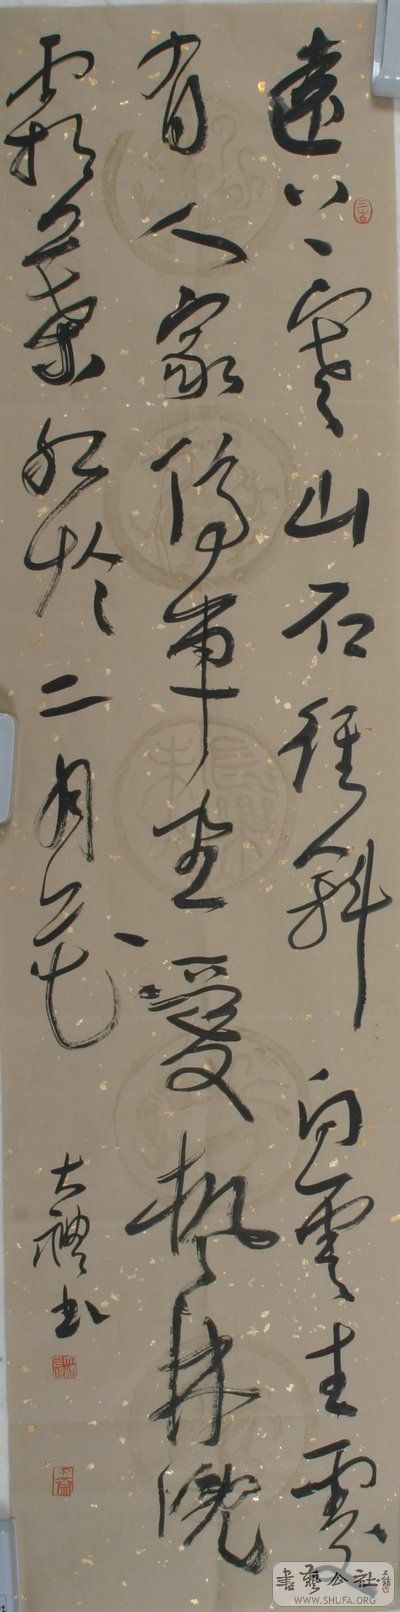 遠上寒山石徑斜白雲生處
有人家停車坐愛楓林晚
霜葉紅於二月花
大禮書
書藝公社
WWW.SHUFA.ORG